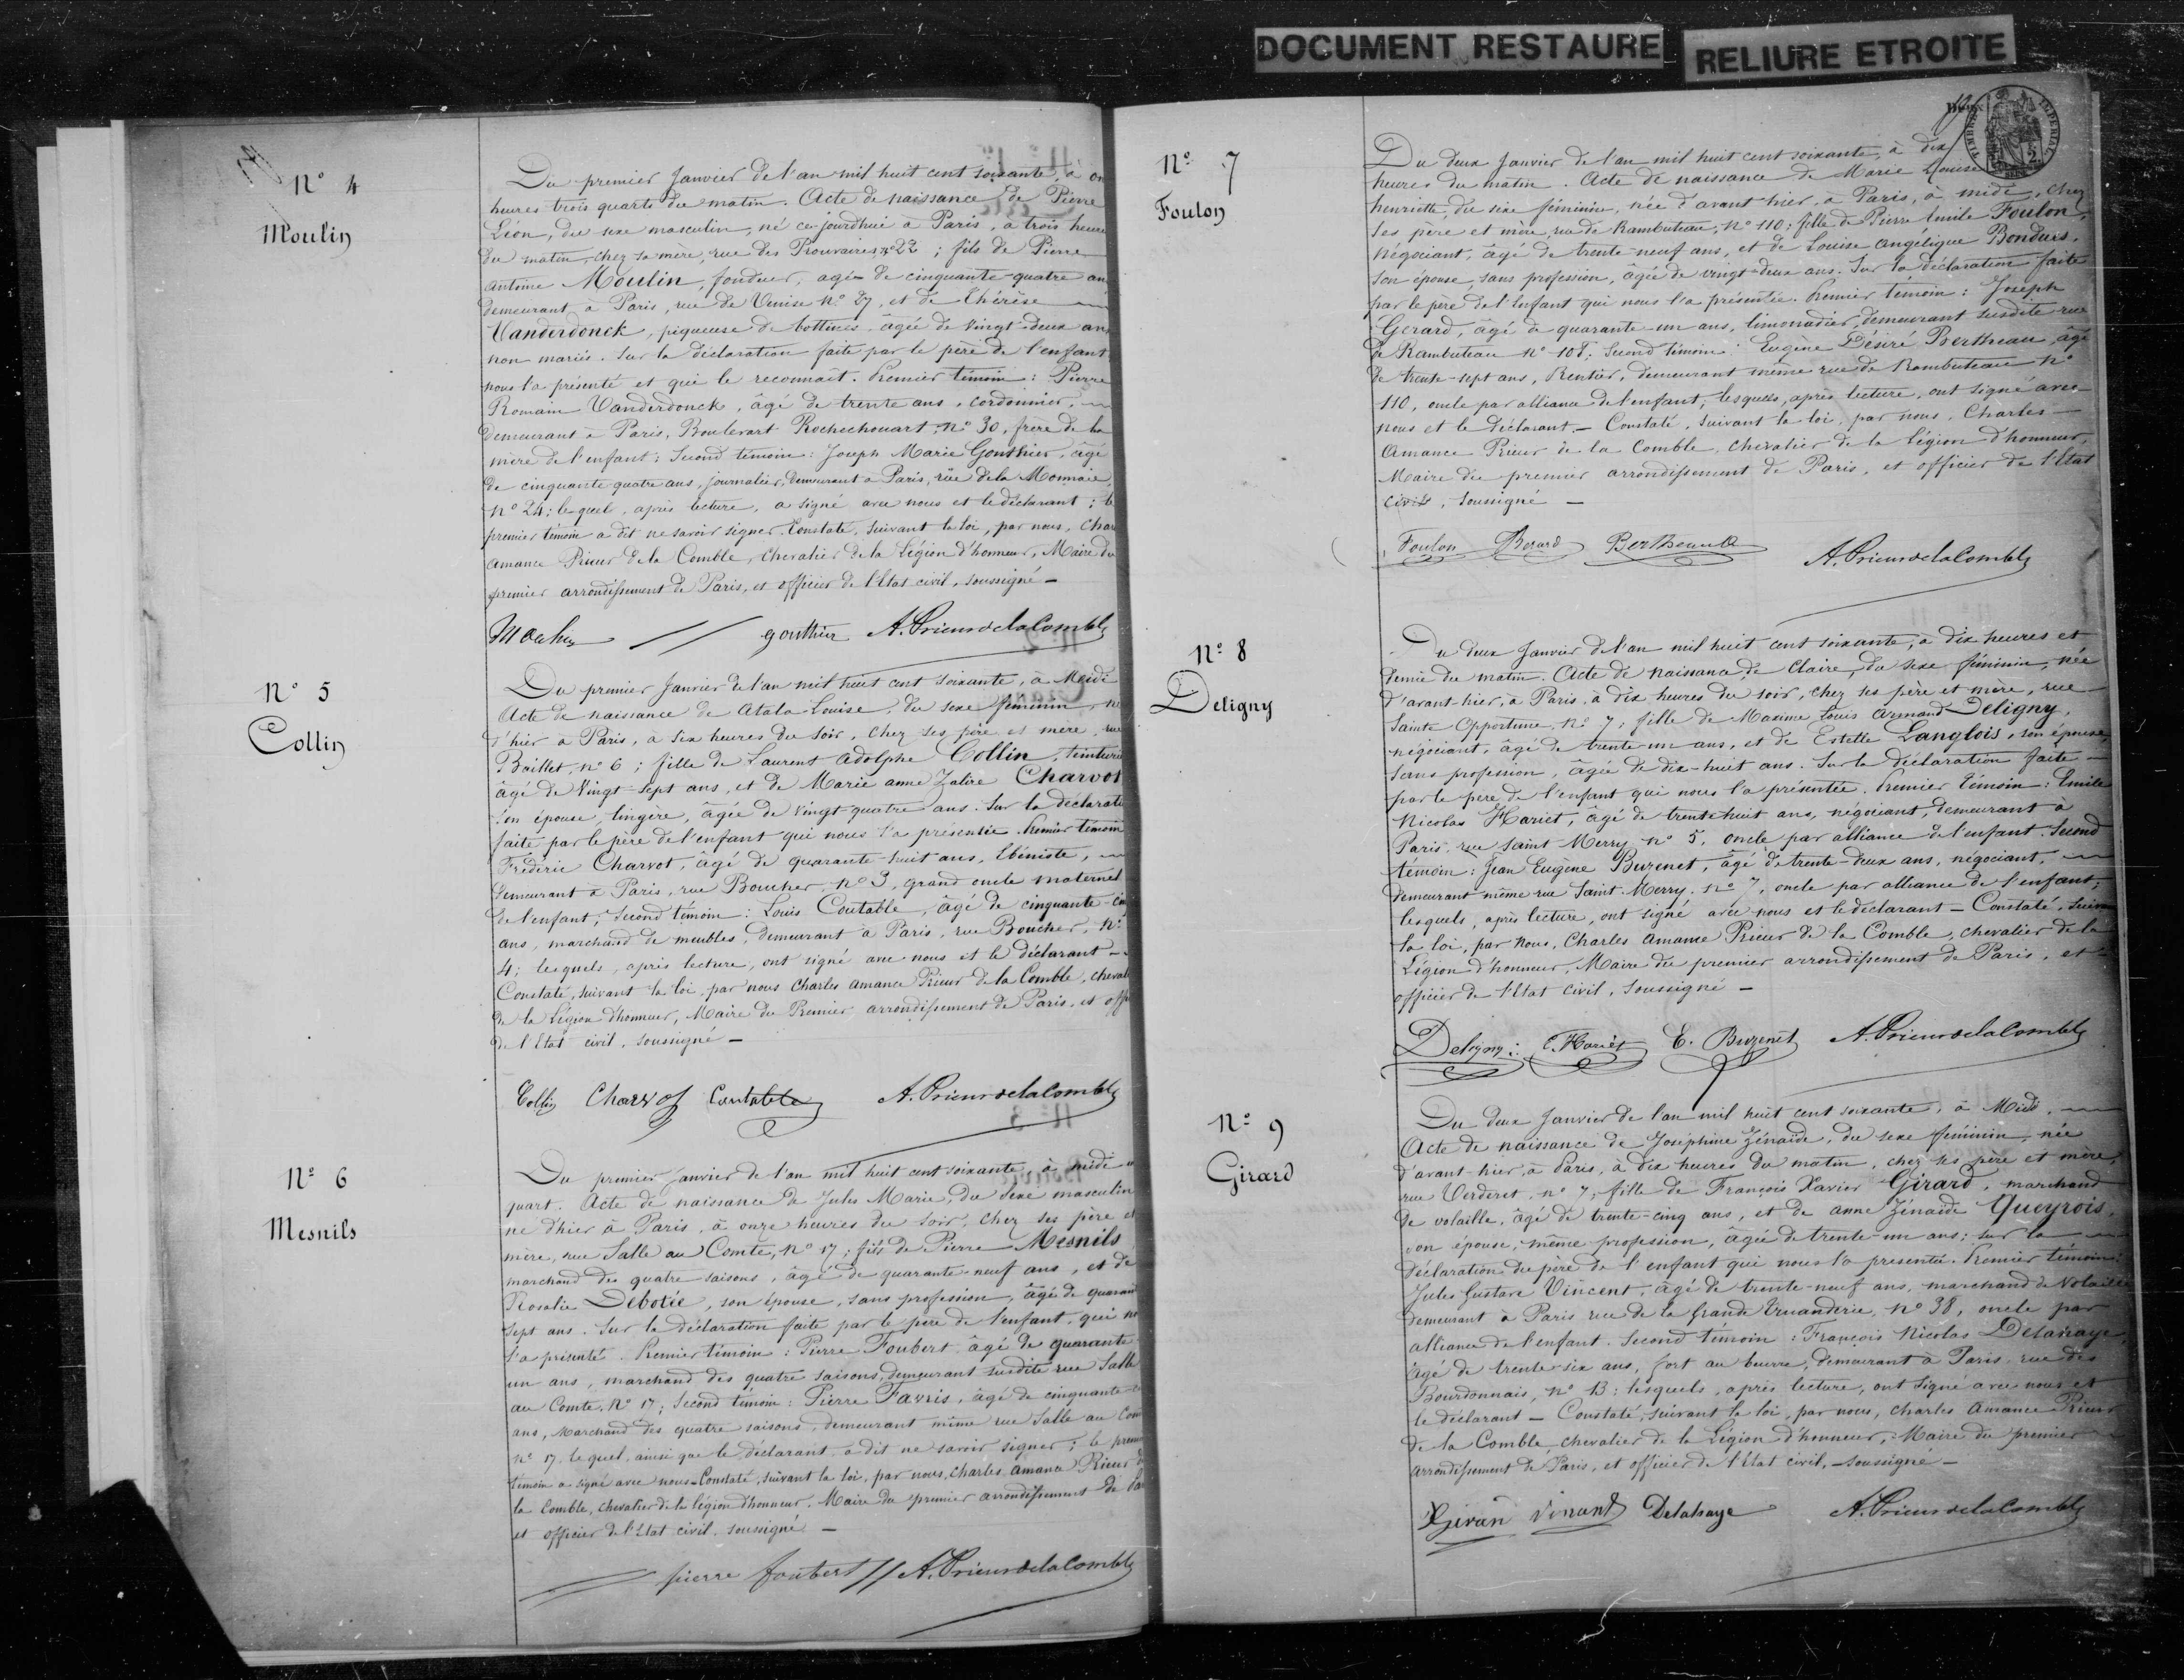 DOCUMENT RESTAURE
RELIURE ETROITE
N° 4
Moulin
Du premier Janvier de l'an mil huit cent soixante, à on
heures trois quarts du matin. Acte de naissance de Pierre
Léon, du sexe masculin, né ce jourd'hui à Paris, à trois heure
du matin, chez sa mère, rue des Prouvaires, n° 22 ; fils de Pierre
Antoine Moulin, fondeur, agé de cinquante-quatre an
demeurant à Paris, rue de Venise N° 27, et de Thérèse
Vanderdonck, piqueuse de bottines, âgée de vingt-deux an
non mariés. Sur la déclaration faite par le père de l'enfant
nous l'a présenté et qui le reconnait. Premier témoin : Pierre
Romain Vanderdonck, âgé de trente ans, cordonnier,
demeurant à Paris, Boulevart Rochechouart, n° 30, frère de la
mère de l'enfant ; Second témoin : Joseph Marie Gonthier, âgé
de cinquante quatre ans, journalier, demeurant à Paris, rue de la Monnaie,
N° 24 ; lequel, après lecture, a signé avec nous et le déclarant ; le
premier témoin a dit ne savoir signer. Constaté, suivant la loi, par nous, Char
Amance Prieur de la Comble, chevalier de la Légion d'honneur, Maire du
premier arrondissement de Paris, et officier de l'Etat civil, soussigné —
Moulin // gonthier A. Prieur de la Comble
N° 5
Collin
Du premier Janvier de l'an mil huit cent soixante, à Midi
Acte de naissance de Atala Louise, du sexe féminin, né
d'hier à Paris, à six heures du soir, chez ses père et mère, rue
Baillet, n° 6 ; fille de Laurent Adolphe Collin, teinturie
âgé de vingt-sept ans, et de Marie anne Zalire Charvot
son épouse, lingère, âgée de vingt-quatre ans. Sur la déclarati
faite par le père de l'enfant qui nous l'a présentée. Premier témoin
Frédéric Charvot, âgé de quarante-huit ans, Ebéniste,
demeurant à Paris, rue Boucher, n° 3, grand oncle maternel
de l'enfant ; Second témoin : Louis Coutable, âgé de cinquante-cin
ans, marchand de meubles, demeurant à Paris, rue Boucher, N°
4 ; lesquels, après lecture, ont signé avec nous et le déclarant —
Constaté, suivant la loi, par nous Charles Amance Prieur de la Comble, cheval
de la Légion d'honneur, Maire du Premier arrondissement de Paris, et offi
de l'Etat civil, soussigné —
Collin Charvot Coutable A. Prieur de la Comble
N° 6
Mesnils
Du premier Janvier de l'an mil huit cent soixante, à midi u
quart. Acte de naissance de Jules Marie, du sexe masculin
né d'hier à Paris, à onze heures du soir, chez ses père et
mère, rue Salle au Comte, N° 17 ; fils de Pierre Mesnils
marchand des quatre saisons, âgé de quarante-neuf ans, et de
Rosalie Debotée, son épouse, sans profession, âgée de quarant
sept ans. Sur la déclaration faite par le père de l'enfant, qui no
l'a présenté. Premier témoin : Pierre Foubert, âgé de quarante
un ans, marchand des quatre saisons, demeurant susdite rue Salle
au Comte, N° 17 ; Second témoin : Pierre Favris, âgé de cinquante
ans, Marchand des quatre saisons, demeurant même rue Salle au Com
N° 17, lequel, ainsi que le déclarant, a dit ne savoir signer ; le premi
témoin a signé avec nous — Constaté, suivant la loi, par nous, Charles Amance Prieur d
la Comble, chevalier de la légion d'honneur, Maire du premier arrondissement de Par
et officier de l'Etat civil, soussigné —
pierre foubert // A. Prieur de la Comble
N° 7
Foulon
Du deux Janvier de l'an mil huit cent soixante, à dix
heures du matin. Acte de naissance de Marie Louise
henriette, du sexe féminin, née d'avant hier, à Paris, à midi, chez
ses père et mère, rue de Rambuteau, N° 110 ; fille de Pierre Emile Foulon,
négociant, âgé de trente-neuf ans, et de Louise Angélique Bonduis,
son épouse, sans profession, âgée de vingt-deux ans. Sur la déclaration faite
par le père de l'enfant qui nous l'a présentée. Premier témoin : Joseph
Gerard, âgé de quarante-un ans, limonadier, demeurant susdite rue
de Rambuteau N° 108 ; Second témoin : Eugène Désiré Bertheau, âgé
de trente-sept ans, Rentier, demeurant même rue de Rambuteau N°
110, oncle par alliance de l'enfant, lesquels, après lecture, ont signé avec
nous et le déclarant — Constaté, suivant la loi, par nous, Charles
Amance Prieur de la Comble, chevalier de la Légion d'honneur,
Maire du premier arrondissement de Paris, et officier de l'Etat
civil, soussigné —
Foulon A. Prieur de la Comble
N° 8
Deligny
Du deux Janvier de l'an mil huit cent soixante, à dix heures et
demie du matin. Acte de naissance de Claire, du sexe féminin, née
d'avant hier, à Paris, à dix heures du soir, chez ses père et mère, rue
Sainte Opportune, N° 7 ; fille de Maxime Louis Armand Deligny,
négociant, âgé de trente-un ans, et de Estelle Langlois, son épouse,
sans profession, âgée de dix-huit ans. Sur la déclaration faite
par le père de l'enfant qui nous l'a présentée. Premier témoin : Emile
Nicolas Hariet, âgé de trente huit ans, négociant, demeurant à
Paris, rue Saint Merry, n° 5, oncle par alliance de l'enfant. Second
témoin : Jean Eugène Buzenet, âgé de trente-deux ans, négociant,
demeurant même rue Saint-Merry, n° 7, oncle par alliance de l'enfant ;
lesquels, après lecture, ont signé avec nous et le déclarant — Constaté, suivan
la loi, par nous, Charles Amance Prieur de la Comble, chevalier de la
Légion d'honneur, Maire du premier arrondissement de Paris, et
officier de l'Etat civil, soussigné —
Deligny E. Hariet E. Buzenet A. Prieur de la Comble
N° 9
Girard
Du deux Janvier de l'an mil huit cent soixante, à Midi.
Acte de naissance de Joséphine Zénaïde, du sexe féminin, née
d'avant-hier, à Paris, à dix heures du matin, chez ses père et mère,
rue Verderet, n° 7, fille de François Xavier Girard, marchand
de volaille, âgé de trente-cinq ans, et de anne Zénaïde Queyrois,
son épouse, même profession, âgée de trente-un ans ; sur la
déclaration du père de l'enfant qui nous l'a présentée. Premier témoin :
Jules Gustave Vincent, âgé de trente-neuf ans, marchand de Volaille
demeurant à Paris rue de la Grande Truanderie, N° 38, oncle par
alliance de l'enfant. Second témoin : François Nicolas Delahaye,
âgé de trente-six ans, fort au beurre, demeurant à Paris, rue des
Bourdonnais, N° 13 ; lesquels, après lecture, ont signé avec nous et
le déclarant — Constaté, suivant la loi, par nous, Charles Amance Prieur
de la Comble, chevalier de la Légion d'honneur, Maire du premier
arrondissement de Paris, et officier de l'Etat civil, soussigné —
Delahaye A. Prieur de la Comble